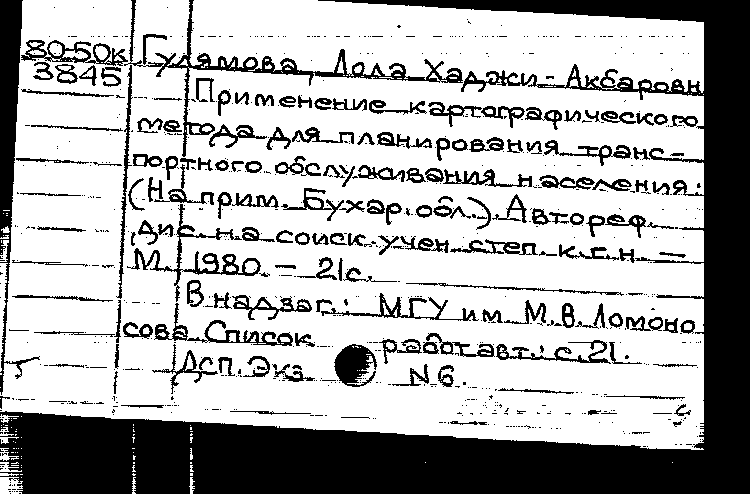 80-50к Гулямова, Лола Хаджи-Акбаровн
3845
Применение картографического
метода для планирования транс-
портного обслуживания населения:
(На прим. Бухар. обл.). Автореф.
дис. на соиск. учен. степ. к.г.н. —
М., 1980. — 21с.
В надзаг.: МГУ им. М.В. Ломоно
сова. Список работ авт.: с. 21.
ДСП. Экз. N 6.